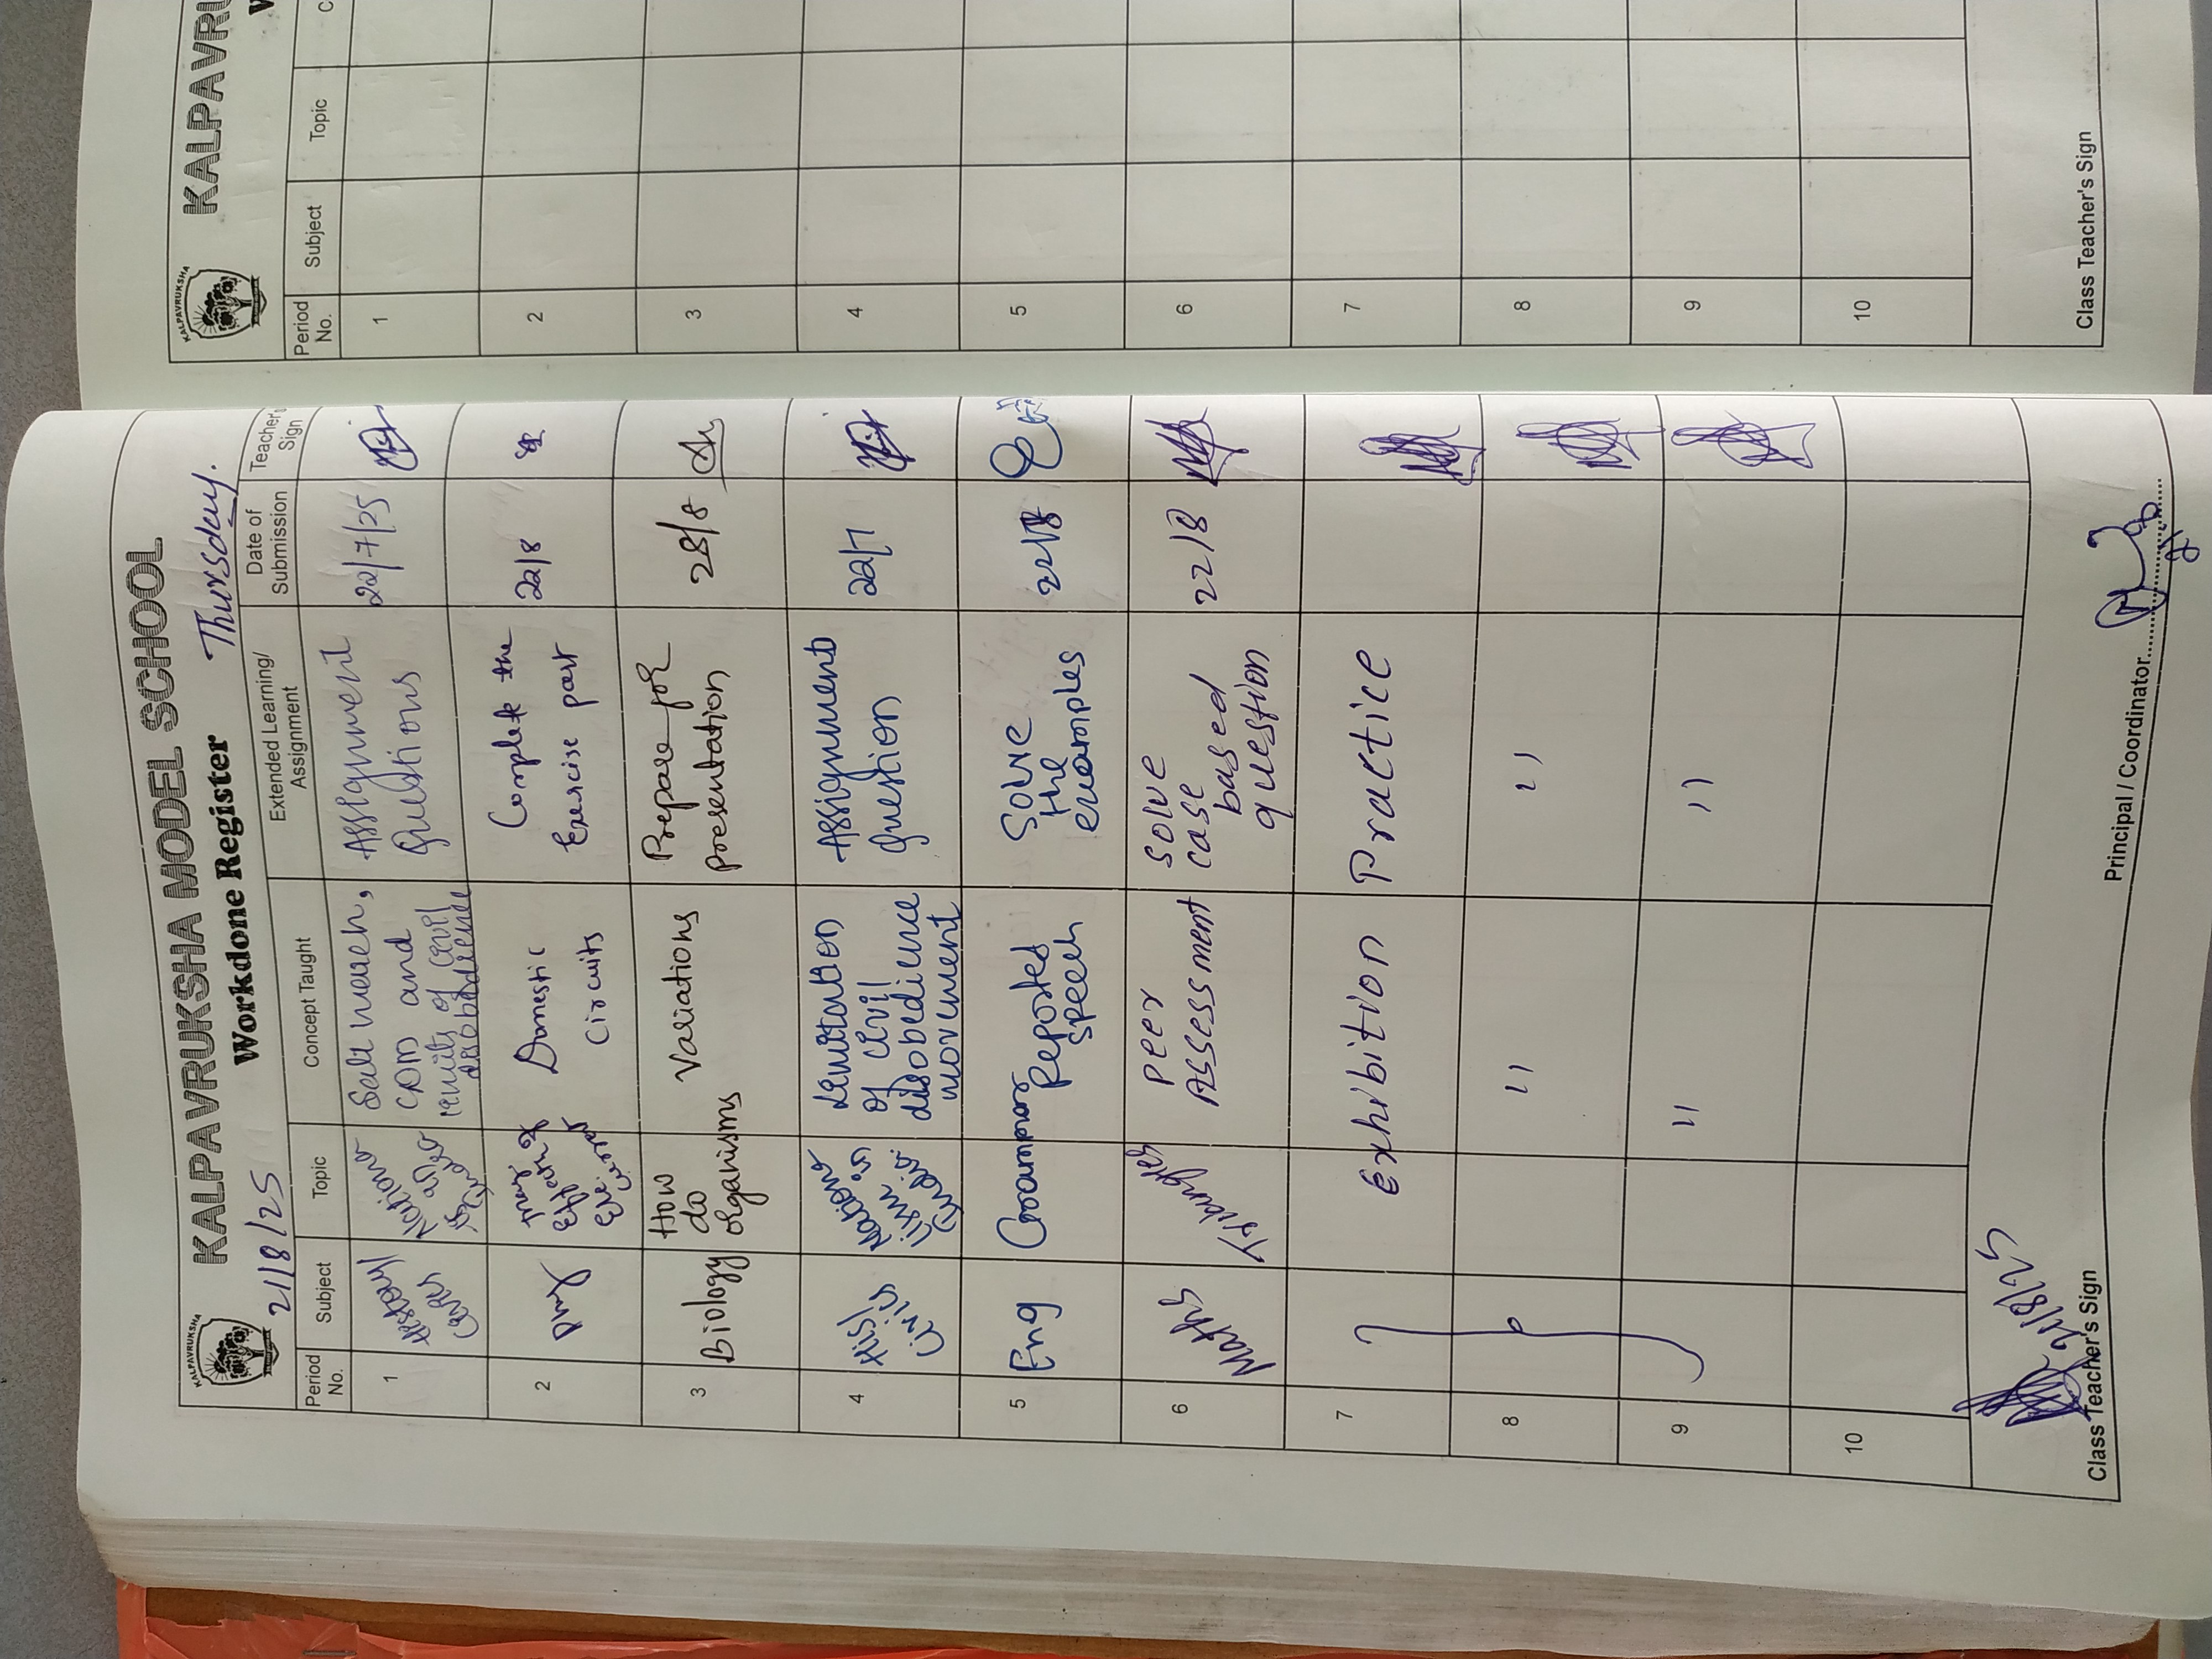 KALPAVRUKSHA
KALPAVRUKSHA MODEL SCHOOL
21/8/25 Workdone Register Thursday.
Period No. Subject Topic Concept Taught Extended Learning/ Assignment Date of Submission Teacher Sign
1 Nations Salt march, Assignment 22/7/25
CDM and Questions
limits of Civil
disobedience
2 Phy Domestic Complete the 22/8
Circuits Exercise part
3 Biology How do organisms Variations Prepare for 28/8
presentation
4 Hist Civics Limitation Assignment 22/7
of civil question
disobedience
movement
5 Eng Grammar Reported Solve 22/8
speech the
examples
6 Maths Triangles Peer solve 22/8
Assessment case
based
question
7 Exhibition Practice
8 " "
9 " "
10
21/8/25
Class Teacher's Sign Principal / Coordinator
KALPAVRUKSHA
KALPAVRU
Period No. Subject Topic C
1
2
3
4
5
6
7
8
9
10
Class Teacher's Sign